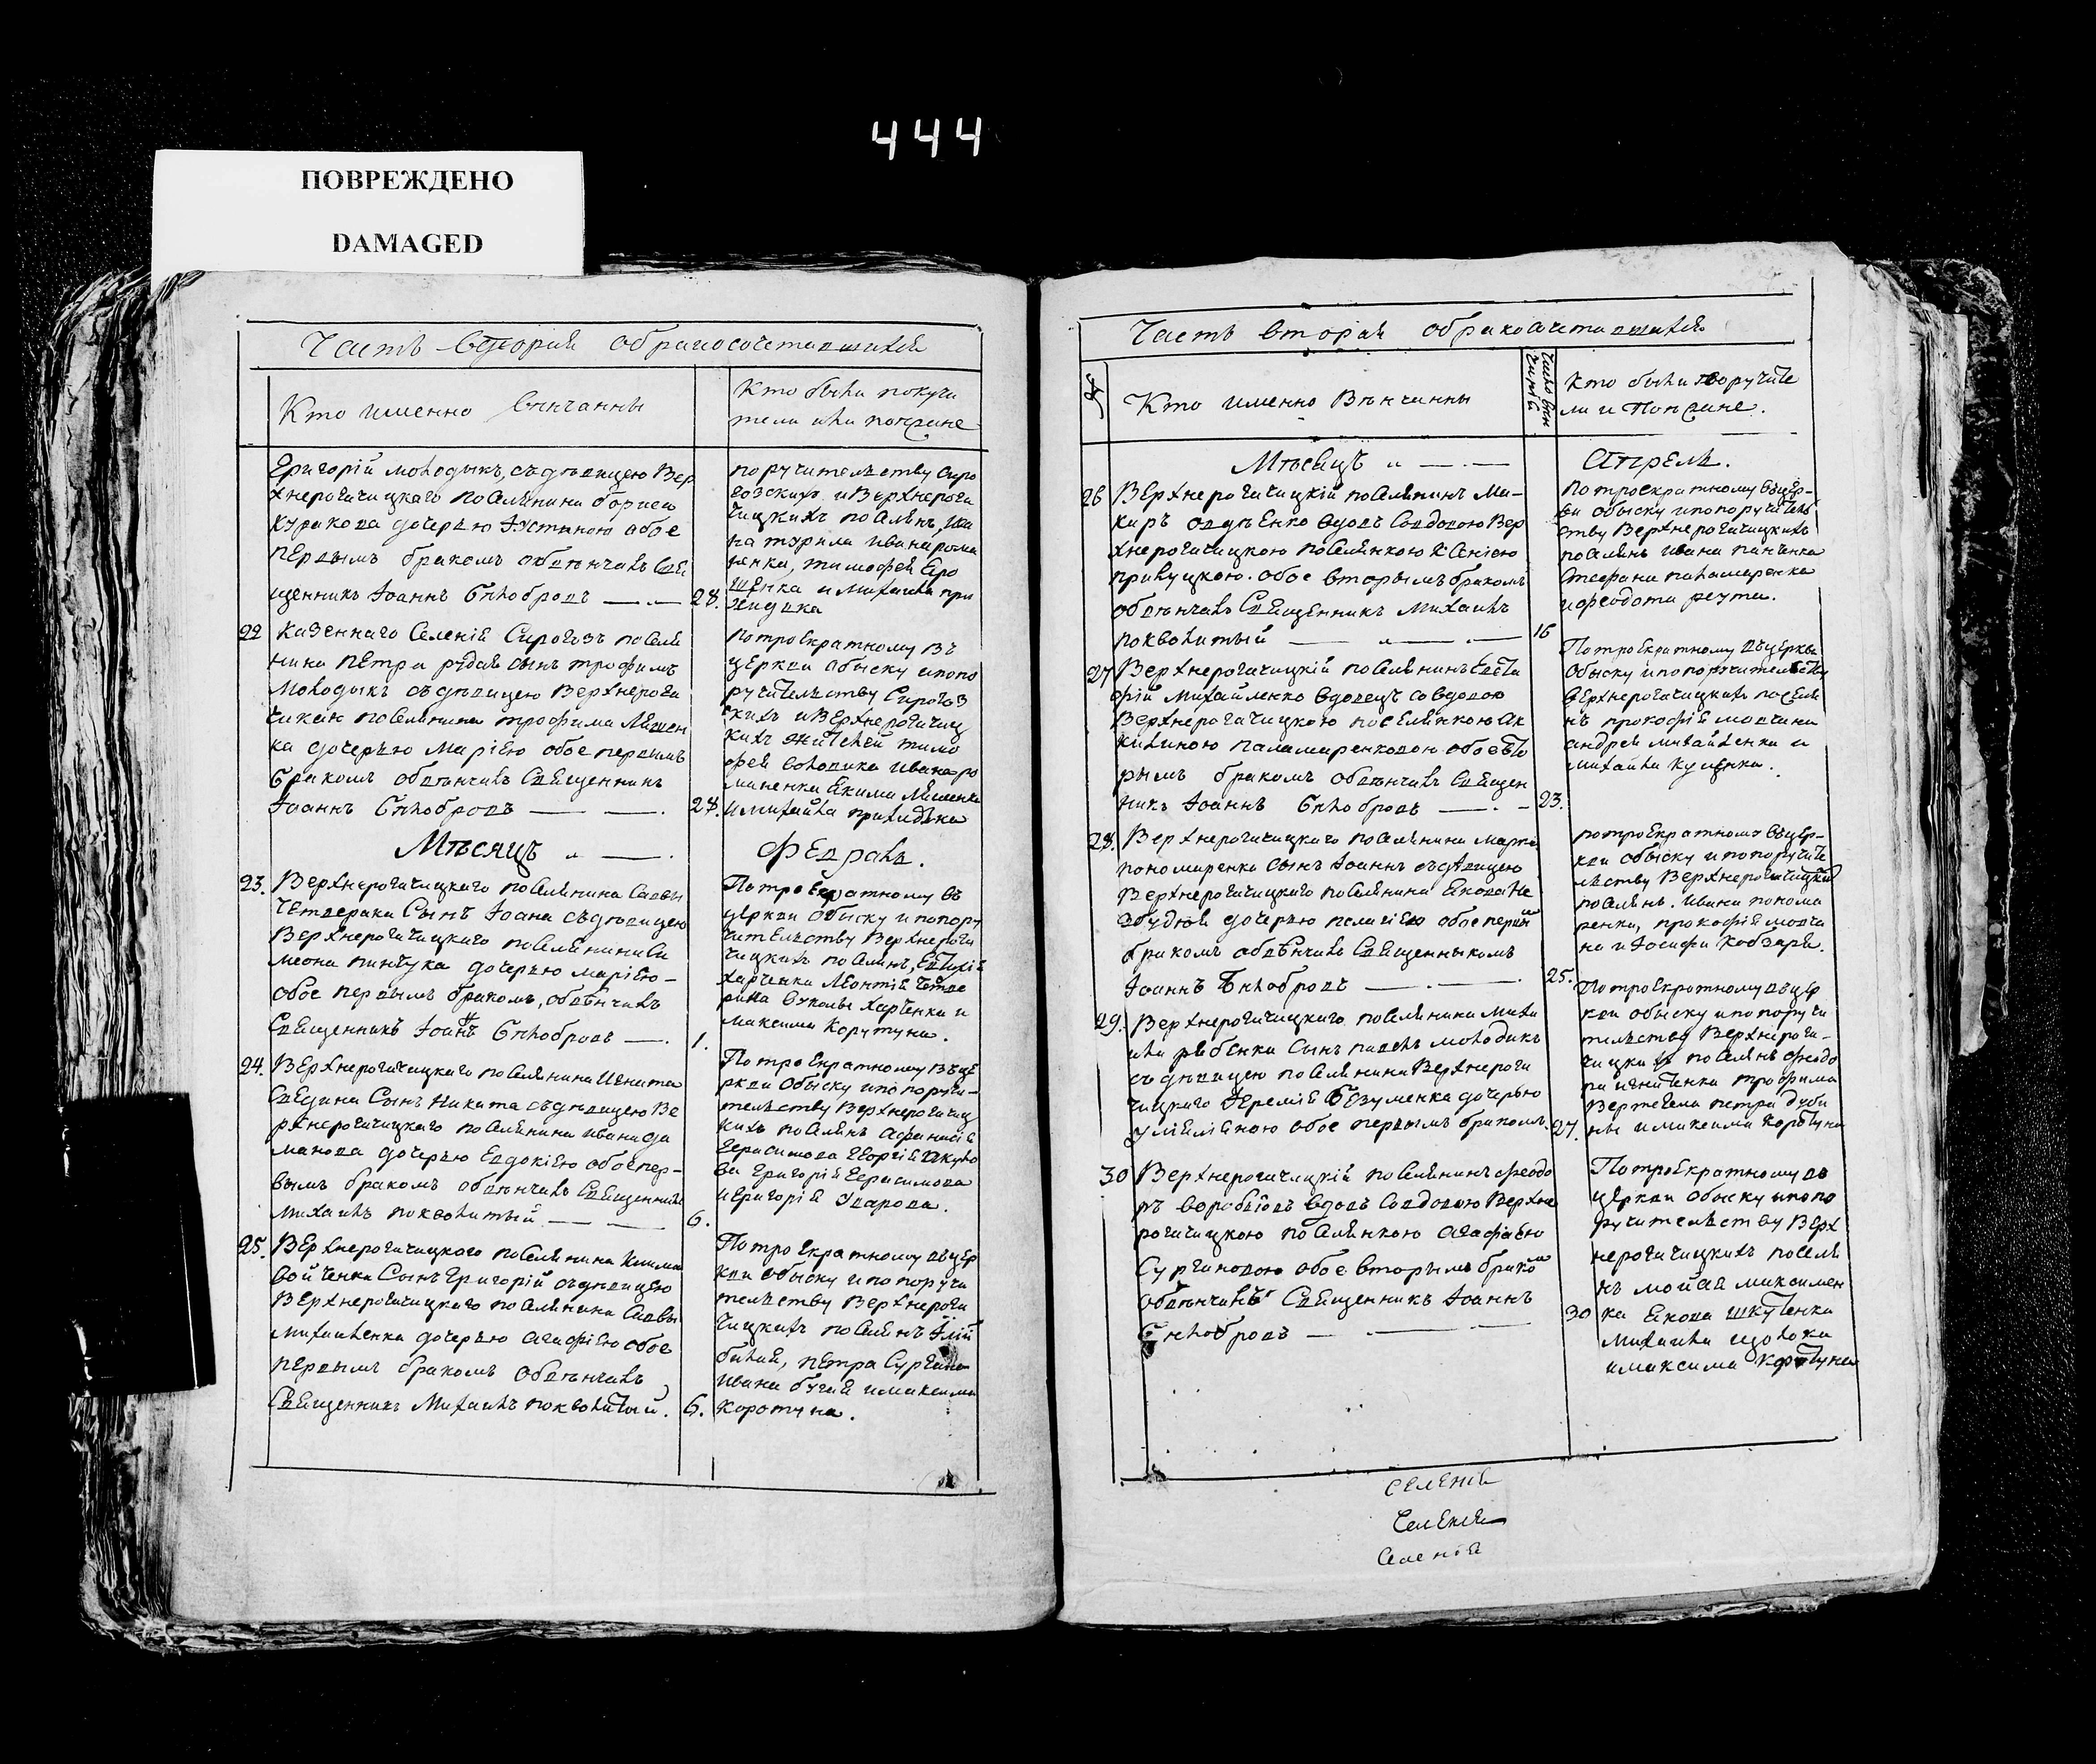 444
ПОВРЕЖДЕНО
DAMAGED
Часть вторая обракосочетавшихся
Кто именно венчанны
Кто были поручи
тели или поезжане
Григорій молодыкъ, съ дѣвицею Вер
хнерогачицкаго поселянина бориса
куракова дочерью Іустиною обое
первымъ бракомъ обвѣнчалъ Свя
щенникъ Іоаннъ Бѣлобровъ — — 28.
поручителству Сиро
гозскихъ и Верхнерога
чицкихъ поселянъ,
ивана рома
ненка, тимофея
и Михаила при
ходька
22 Казеннаго Селенія Сирогозъ поселя
нина петра рудая сынъ трофимъ
Молодыкъ съ дѣвицею Верхнерога
чикаю поселянина трофима Ляшен
ка дочерью Маріею обое первымъ
бракомъ обвѣнчалъ Священникъ
Іоаннъ Бѣлобровъ — — . 28.
потроекратному въ
церкви обыску и попо
ручителству Сирогоз
кихъ и Верхнерогачиц
кихъ жителей тимо
фея Солодика ивана ро
маненка Екима Ляшенка
и михайла приходька
Мѣсяцъ „ — .
Февраль.
23. Верхнерогачицкаго поселянина Саввы
Четверака Сынъ Іоанъ съ дѣвицею
Верхнерогачицкаго поселянина Си
меона пинчука дочерью маріею –
обое первымъ бракомъ, обвѣнчалъ
Священникъ Іоаннъ Бѣлобровъ — . 1.
Потроекратному въ
церкви обыску и попору
чителству Верхнерога
чицкихъ поселянъ, Евтихія
харченка Леонтія Четве
рика Вуколы харченка и
максима Коротуна.
24. Верхнерогачицкаго поселянина Игната
Сынъ Никита съ дѣвицею Ве
рхнерогачицкаго поселянина ивана
дочерью Евдокіею обое пер–
вымъ бракомъ обвѣнчалъ Священникъ
Михаилъ поквалитый — — 6.
Потроекратному въ це
ркви Обыску и попоручи–
телству Верхнерогачиц
кихъ поселянъ афанасія
Герасимова Георгія Жуко
ва Григорія Герасимова
и Григорія Уварова.
25. Верхнерогачицкаго поселянина Клима
войченка Сынъ Григорій съ дѣвицею
Верхнерогачицкаго поселянина Саввы
михайленка дочерью агафіею обое
первымъ бракомъ обвѣнчалъ
Священникъ Михаилъ поквалитый. 6.
Потроекратному въ цер
кви обыску и попоручи
телству Верхнерога
чицкихъ поселянъ Іліи
билая, петра Сургана
ивана бугая и максима
Коротуна.
Часть вторая обракосочетавшихся
№
Кто именно Вѣнчанны
Кто были поручите
ли и Поезжане.
Мѣсяцъ „ — . —
Апрель.
26 Верхнерогачицкій поселянинъ Ма–
каръ овдѣенко вдовъ Совдовою Вер
хнерогачицкою поселянкою Ксеніею
прилуцкою. обое вторымъ бракомъ
обвѣнчалъ Священникъ Михаилъ
поквалитый — „ — . — 16
Потроекратному въ цер–
кви обыску и попоручитель
ству Верхнерогачицкихъ
поселянъ ивана панченка
Стефана паламаренка
и феодота реута.
27 Верхнерогачицкій поселянинъ Евста
фій михайленко вдовецъ совдовою
Верхнерогачицкою поселянкою Ак
килиною паламаренковою обое вто
рымъ бракомъ обвѣнчалъ Священ
никъ Іоаннъ Бѣлобровъ — . – 23.
Потроекратному въ церкви
Обыску и попоручителству
Верхнерогачицкихъ поселя
нъ прокофія мовчана
андрея михайленка и
михайла куценка.
28. Верхнерогачицкаго поселянина марка
пономаренка сынъ Іоаннъ съ дѣвицею
Верхнерогачицкаго поселянина Якова Не
збудюя дочерью пелагіею обое первым
бракомъ обвѣнчалъ Священныкомъ
Іоаннъ Бѣлобровъ — . — . 25.
потроекратному въ цер–
кви обыску и попоручите
льству Верхнерогачицких
поселянъ. ивана понома
ренка, прокофія мовча
на и Іосифа Кобзаря.
29. Верхнерогачицкаго поселянина Миха
ила рябенка Сынъ павелъ молодикъ
съ дѣвицею поселянина Верхнерога
чицкаго Іеремія Безуменка дочерью
уліяліяною обое первымъ бракомъ. 27.
Потроекратному въ цер
кви обыску и попоручи
телству Верхнерога–
чицкихъ поселянъ феодо
ра игнатенка трофима
Вертегела петра дуби
ны и максима Коротуна
30 Верхнерогачицкій поселянинъ феодо
ръ воробіовъ вдовъ Совдовою Верхне
рогачицкою поселянкою агафіею
Сургановою обое вторымъ браком
обвѣнчанъ Священникъ Іоаннъ
Бѣлобровъ — — — 30
Потроекратному въ
церкви обыску и попо
ручителству Верх
нерогачицкихъ поселя
нъ мойсея максимен
ка Якова шкутенка
михаила щолока
и максима Коротуна
селенія
Селенія
Селенія